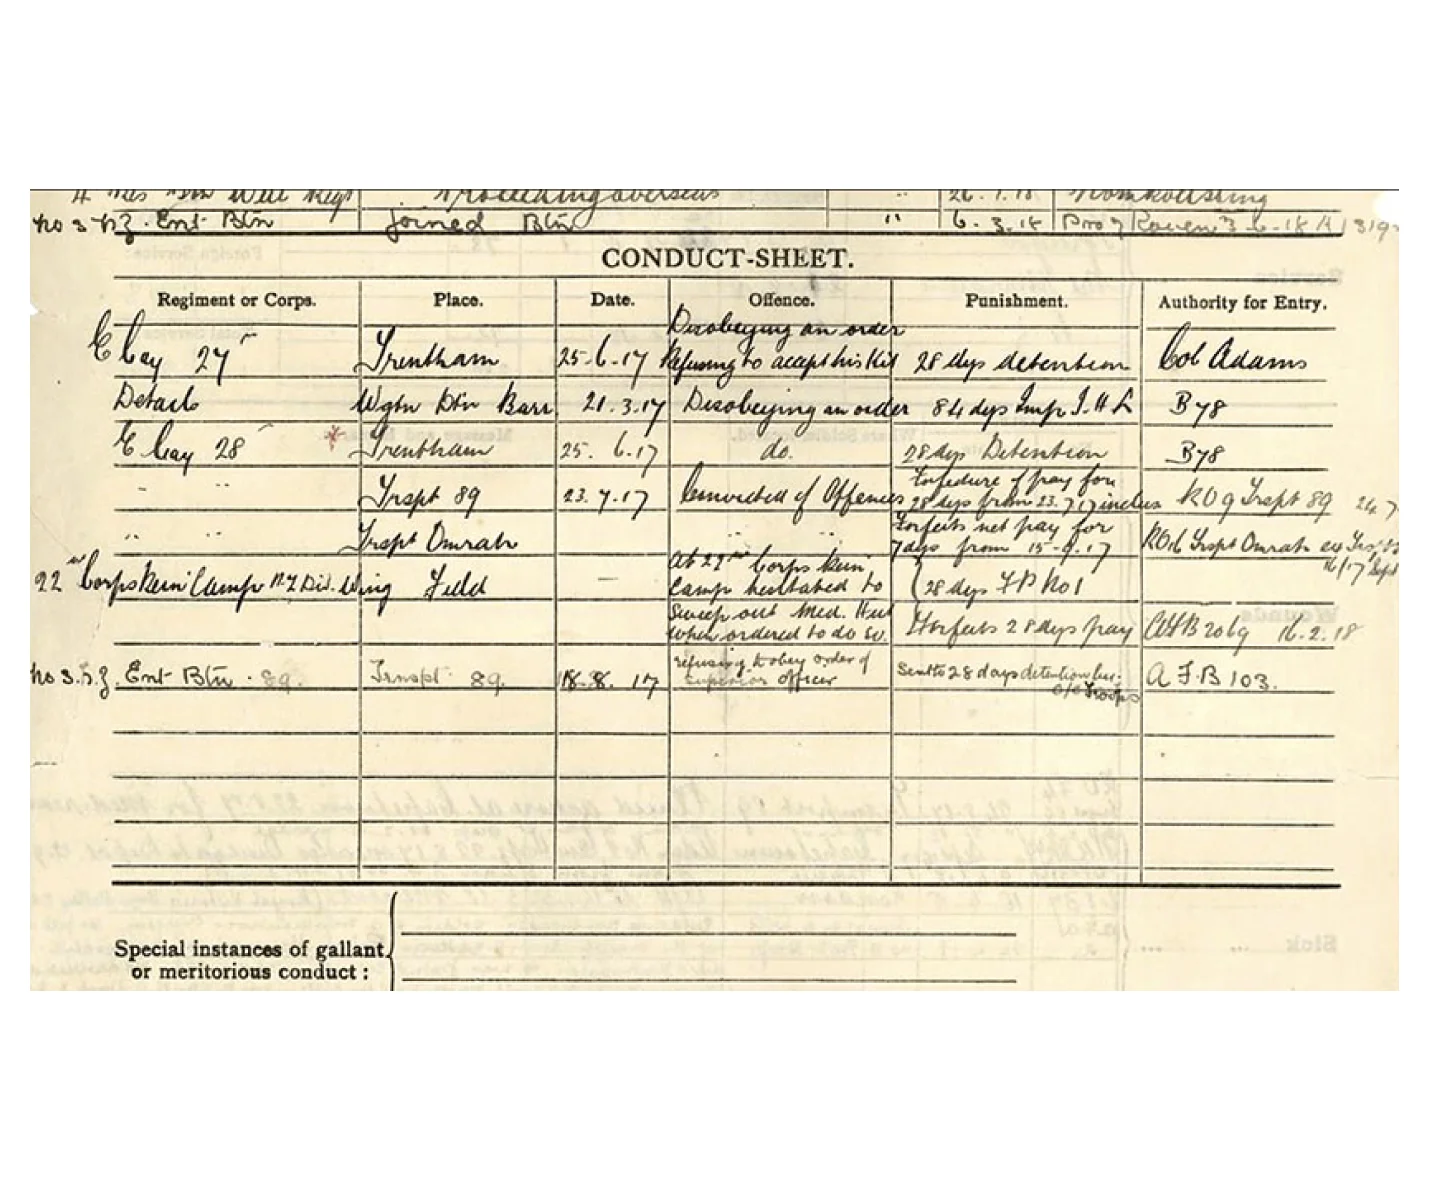 4 Res Btn Well Regt Proceeding overseas " 26.1.18
No 3 N.Z. Ent Btn Joined Btn " 6.3.18
CONDUCT-SHEET.
Regiment or Corps. Place. Date. Offence. Punishment. Authority for Entry.
Disobeying an order
E Coy 27th Trentham 25.6.17 Refusing to accept his Kit 28 dys detention Col Adams
Details Wgtn Dtn Barr 21.3.17 Disobeying an order 84 dys Imp I.H.L B78
E Coy 28th Trentham 25.6.17 do. 28 dys Detention B78
Forfeiture of pay for
" " Trspt 89 23.7.17 Convicted of Offences 28 dys from 23.7.17 inclus RO9 Trspt 89 24.7
Forfeits net pay for
" " Trspt Omrah " " 7 days from 15-9.17 RO6 Trspt Omrah
16/17 Sept
At 22nd Corps Rein
22nd Corps Rein Camp N.Z Div. Wing Field — Camp hesitated to 28 dys F P No 1
Sweep out Med. Hut
when ordered to do so. Forfeits 28 days pay AFB2069 16.2.18
No 3.N.Z. Ent Btn. 89. Trnspt 89. 18.8.17 refusing to obey order of
superior officer Sent to 28 days detention by:
o/c Troops A.F.B 103.
Special instances of gallant
or meritorious conduct: